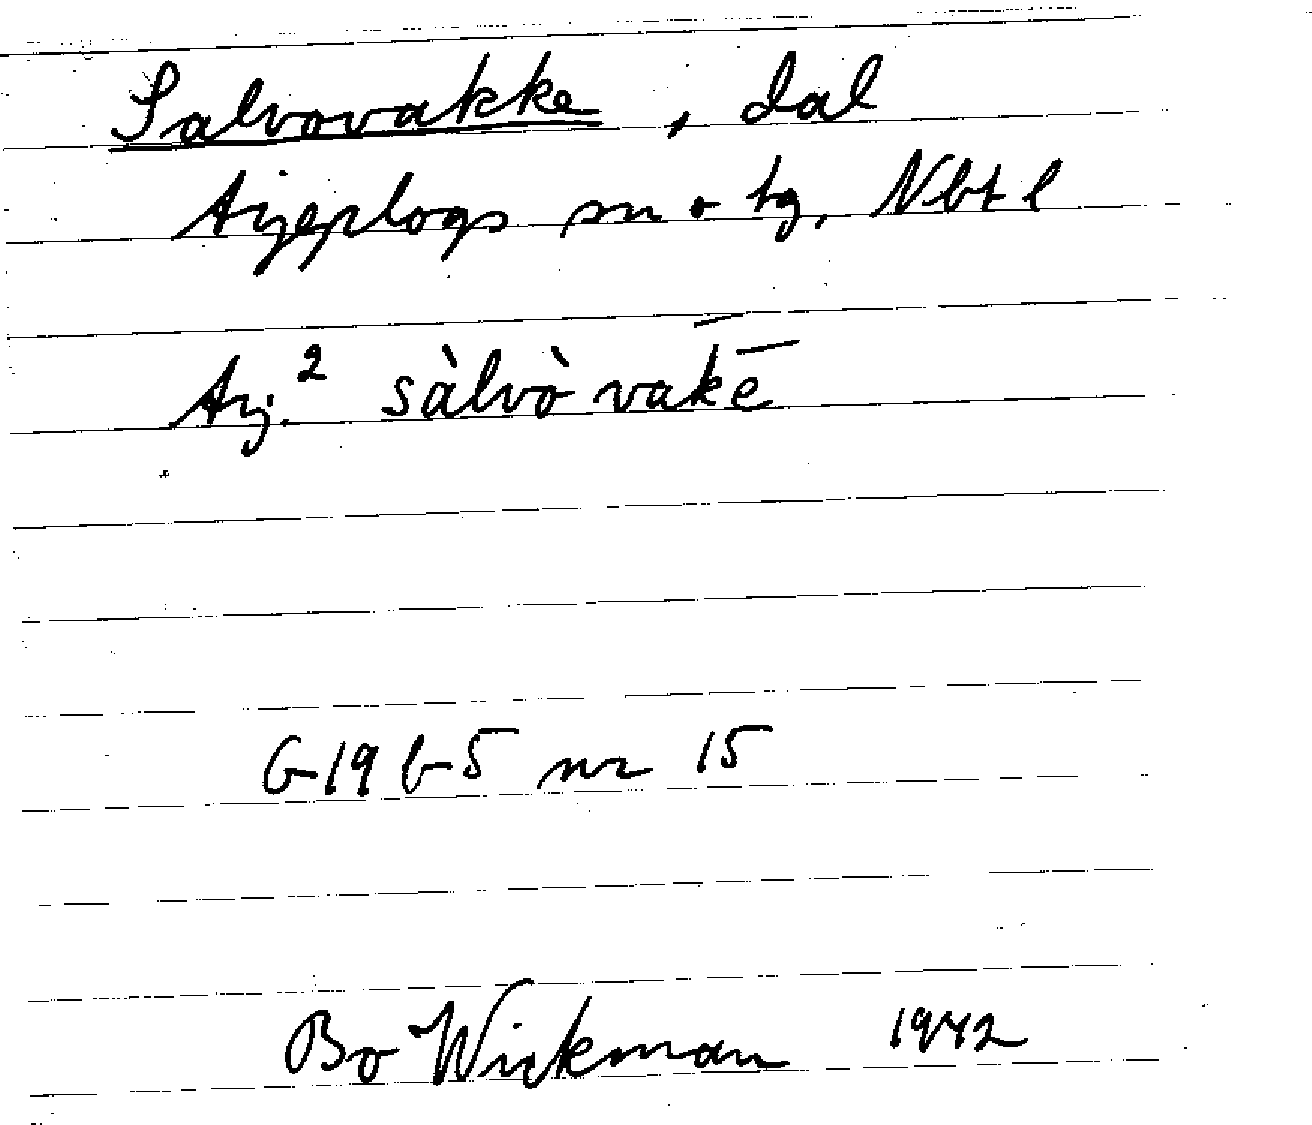 Salvovakke, dal
Arjeplogs sn o tg, Nbtl
Arj.² sàlvò vak̄ē
G-19 b-5 nr 15
Bo Wickman 1942